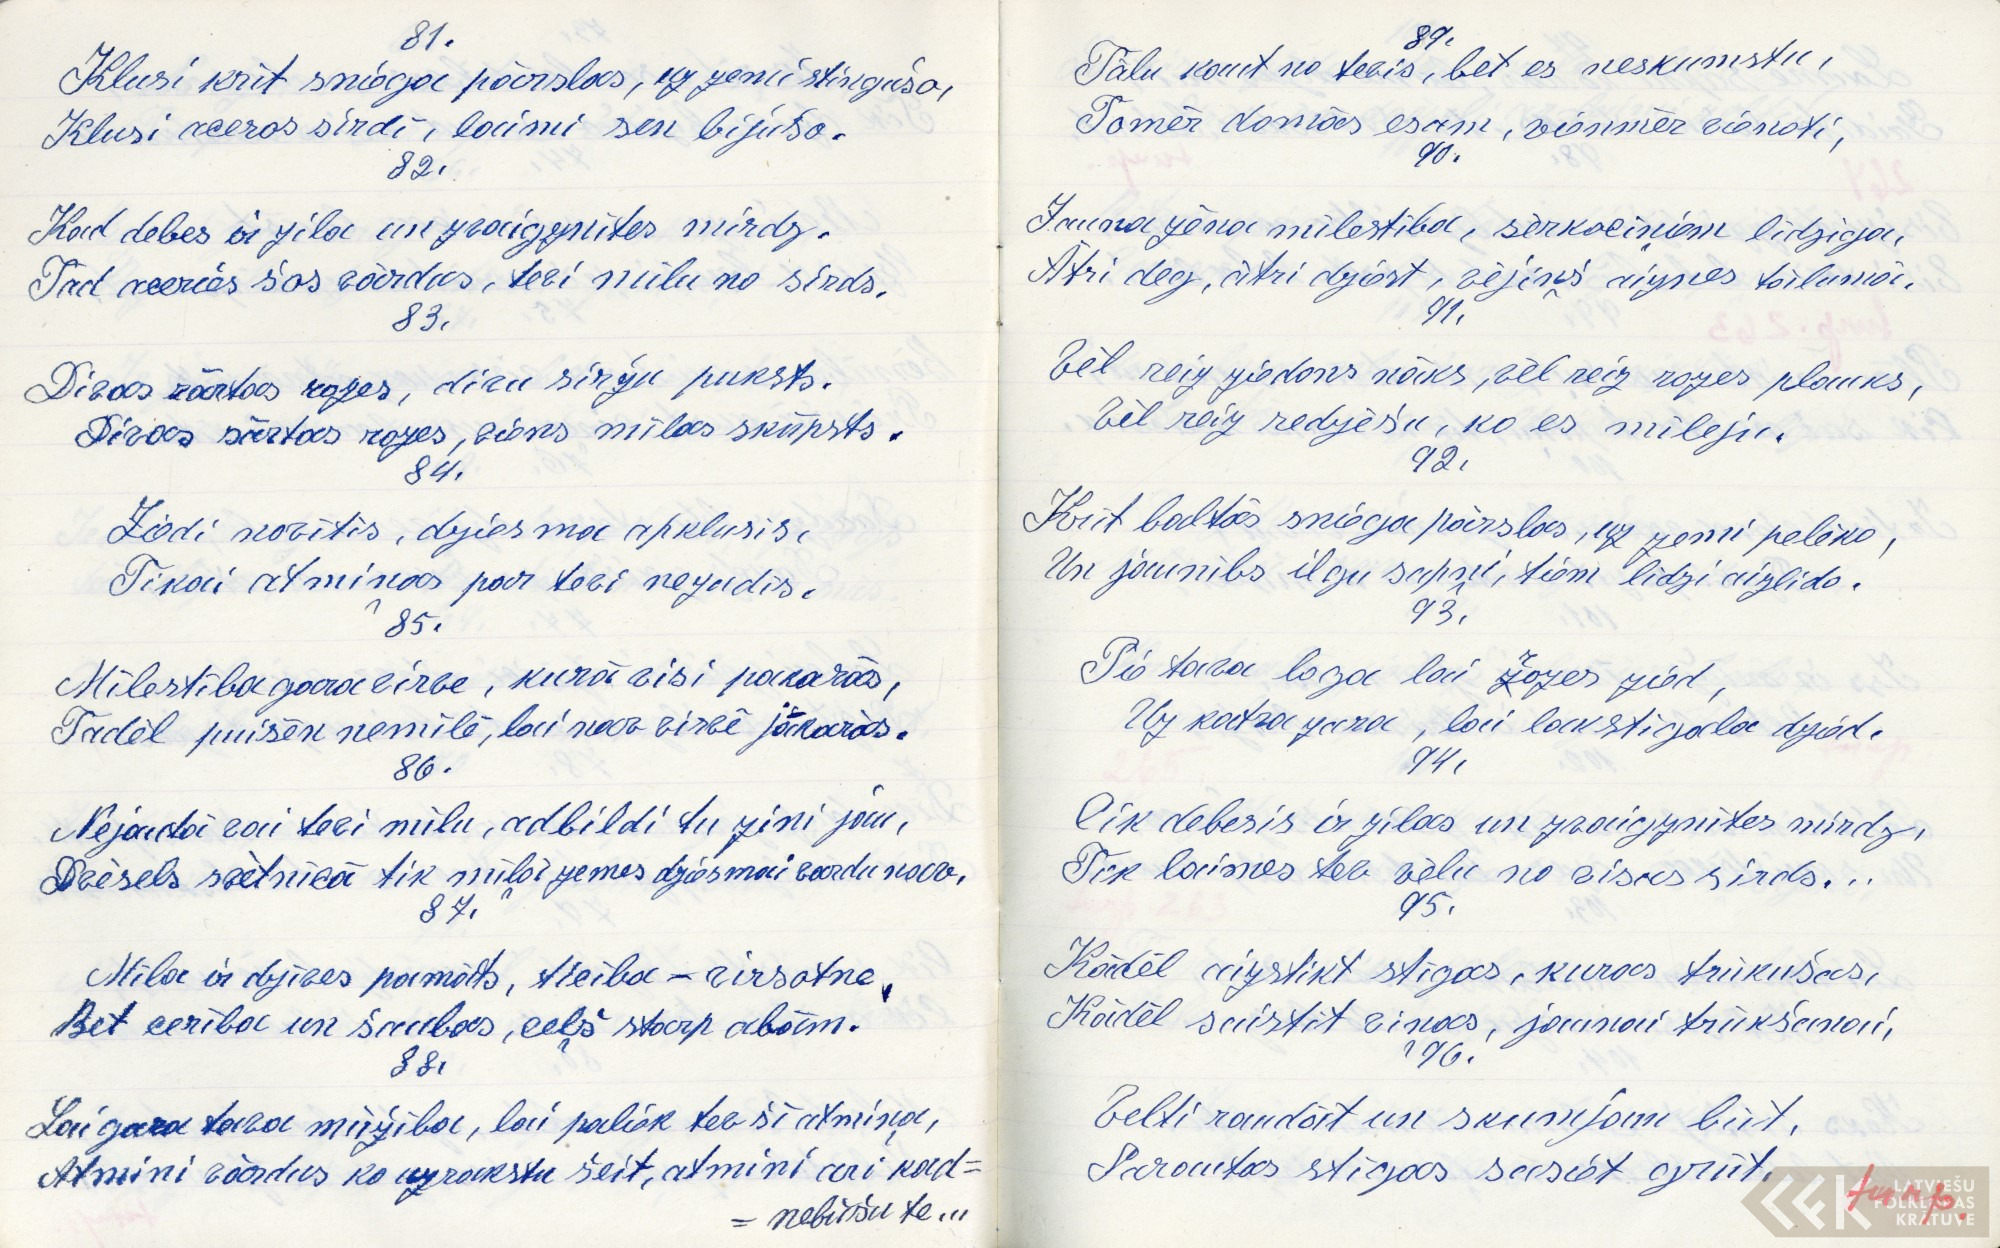 81.
Klusi krīt sniega pārslas, uz zemi stingušo,
Klusi aceros sirdī, laimi sen bijušo.
82.
Kad debes ir zila un zvaigznītes mirdz.
Tad aceries šos vārdus, tevi mīlu no sirds.
83.
Divas sārtas rozes, divu siržu puksts.
Divas sārtas rozes, viens mīlas skūpsts.
84.
Ziedi novītīs, dziesma apklusīs,
Tikai atmiņas par tevi nezudīs.
85.
Mīlestība gara virve, kurā visi pakarās,
Tādēl puišēn nemīlē, lai nav virvē jākarās.
86.
Nejautā vai tevi mīlu, adbildi tu zini jau,
Dvēsels svētnīcā tik mīļā zemes dziesmai vārdu nav.
87.
Mīla ir dzīves pamats, ticība - virsotne,
Bet cerība un šaubas, ceļš starp abām.
88.
Lai gara tava mūžība, lai paliek tev šī atmiņa,
Atmini vārdus ko uzrakstu šeit, atmini arī kad=
= nebūšu te...
89.
Tālu kaut no tevis, bet es neskumstu,
Tomēr domās esam, vienmēr vienoti,
90.
Jauna zēna mīlestība, sērkociņam līdzīga,
Ātri deg, ātri dziest, vējiņš aiznes tālumā.
91.
Vēl reiz ziedons nāks, vēl reiz rozes plauks,
Vēl reiz redzēšu, ko es mīlēju.
92.
Krīt baltās sniega pārslas, uz zemi pelēko,
Un jaunībs ilgu sapņi, tiem līdzi aizlido.
93.
Pie tava loga lai rozes zied,
Uz katra zara, lai lakstīgala dzied.
94.
Cik debesis ir zilas un zvaigznītes mirdz,
Tik laimes tev vēlu no visas sirds...
95.
Kādēl aiztikt stīgas, kuras trūkušas,
Kādēl saistīt viņas, jaunai trūkšanai,
96.
Velti raudāt un skumjam būt,
Sarautas stīgas sasiet grūt.
turp.
LATVIEŠU
FOLKLORAS
KRĀTUVE